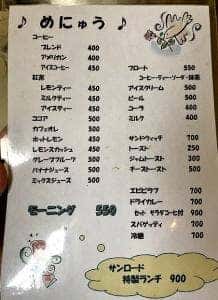 ♪ めにゅう ♪
コーヒー
ブレンド 400
アメリカン 400
アイスコーヒー 450
紅茶
レモンティー 450
ミルクティー 450
アイスティー 450
ココア 500
カフェオレ 500
ホットレモン 450
レモンスカッシュ 450
グレープフルーツ 500
バナナジュース 500
ミックスジュース 500
モーニング 550
フロート 550
コーヒー・ティー・ソーダ・抹茶
アイスクリーム 500
ビール 500
コーラ 400
ミルク 400
サンドウィッチ 700
トースト 250
ジャムトースト 300
チーズトースト 500
エビピラフ 700
ドライカレー 700
セット サラダコーヒー付 900
スパゲティ 700
冷麺 700
サンロード
特製ランチ 900